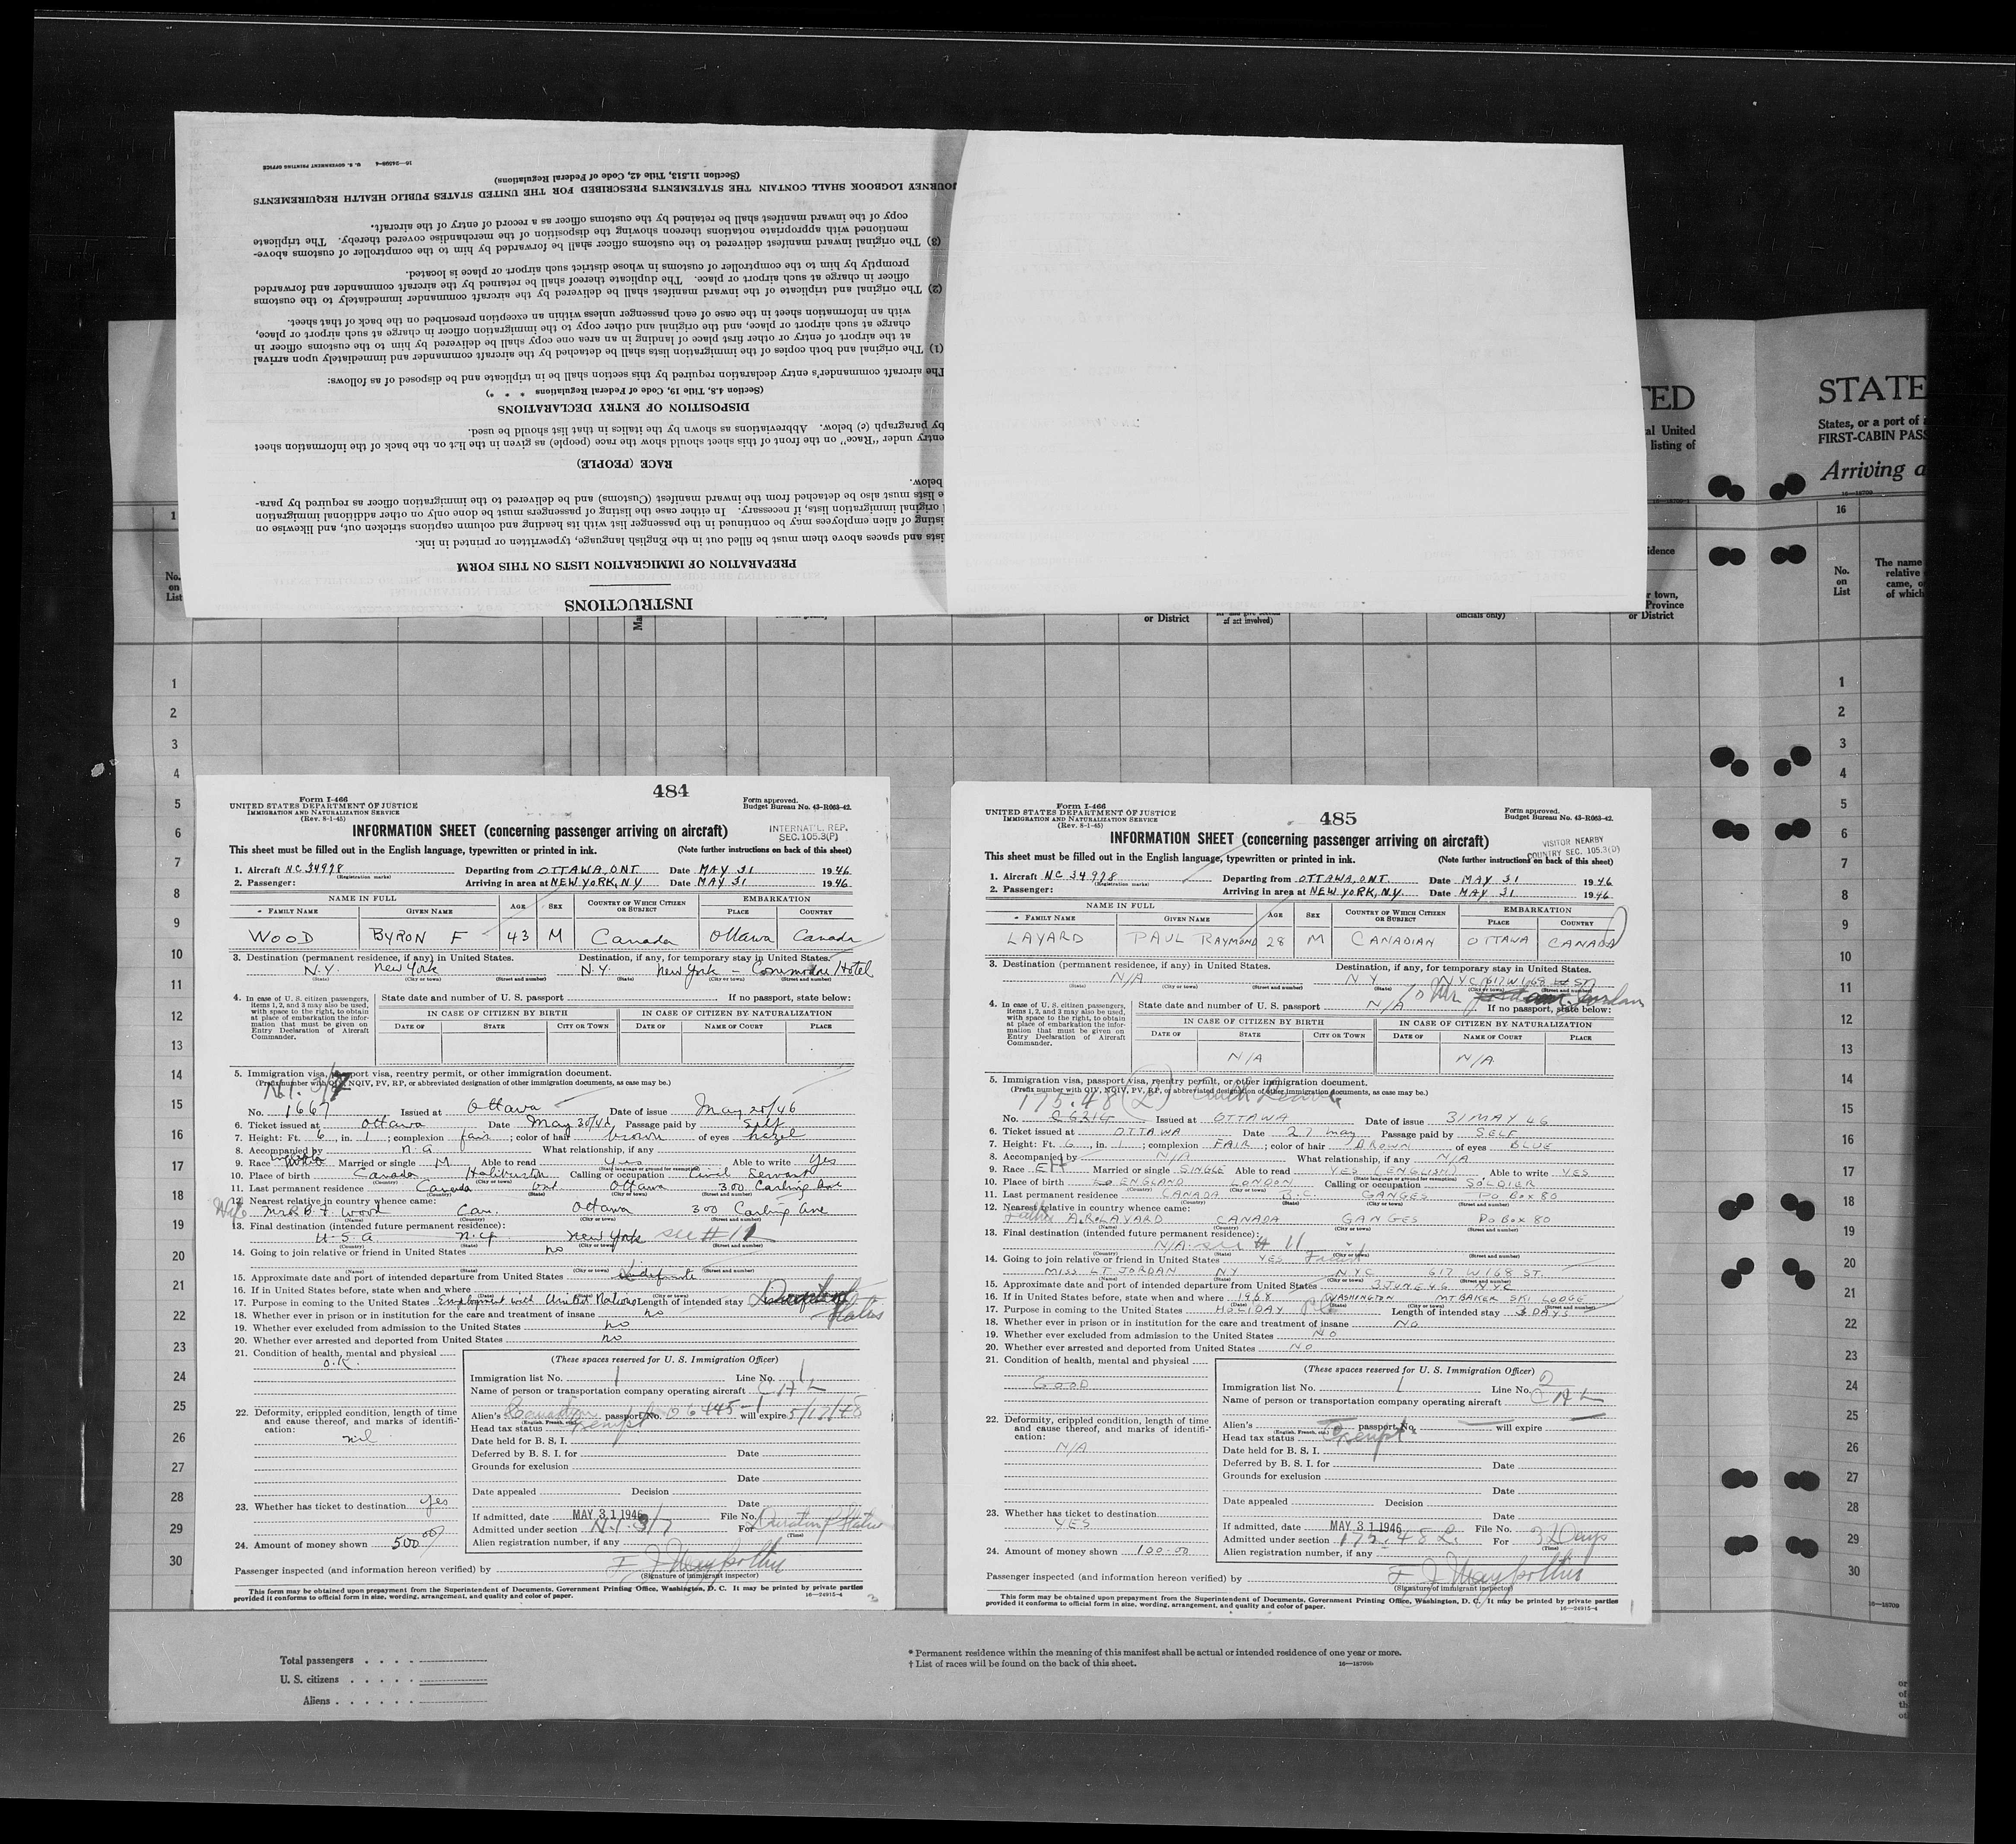 INSTRUCTIONS
PREPARATION OF IMMIGRATION LISTS ON THIS FORM
ists and spaces above them must be filled out in the English language, typewritten or printed in ink.
isting of alien employees may be continued in the passenger list with its heading and column captions stricken out, and likewise on
original immigration lists, if necessary. In either case the listing of passengers must be done only on other additional immigration
e lists must also be detached from the inward manifest (Customs) and be delivered to the immigration officer as required by para-
below.
RACE (PEOPLE)
entry under "Race" on the front of this sheet should show the race (people) as given in the list on the back of the information sheet
by paragraph (c) below. Abbreviations as shown by the italics in that list should be used.
DISPOSITION OF ENTRY DECLARATIONS
(Section 4.8, Title 19, Code of Federal Regulations * * *)
The aircraft commander's entry declaration required by this section shall be in triplicate and be disposed of as follows:
(1) The original and both copies of the immigration lists shall be detached by the aircraft commander and immediately upon arrival
at the airport of entry or other first place of landing in an area one copy shall be delivered by him to the customs officer in
charge at such airport or place, and the original and other copy to the immigration officer in charge at such airport or place,
with an information sheet in the case of each passenger unless within an exception prescribed on the back of that sheet.
(2) The original and triplicate of the inward manifest shall be delivered by the aircraft commander immediately to the customs
officer in charge at such airport or place. The duplicate thereof shall be retained by the aircraft commander and forwarded
promptly by him to the comptroller of customs in whose district such airport or place is located.
(3) The original inward manifest delivered to the customs officer shall be forwarded by him to the comptroller of customs above-
mentioned with appropriate notations thereon showing the disposition of the merchandise covered thereby. The triplicate
copy of the inward manifest shall be retained by the customs officer as a record of entry of the aircraft.
JOURNEY LOGBOOK SHALL CONTAIN THE STATEMENTS PRESCRIBED FOR THE UNITED STATES PUBLIC HEALTH REQUIREMENTS
(Section 11.513, Title 42, Code of Federal Regulations)
16—24508-4 U. S. GOVERNMENT PRINTING OFFICE
TED
al United
listing of
STATE
States, or a port of
FIRST-CABIN PASS
Arriving a
16—18709
16
No. on List
The name
relative
came, o
of which
idence
r town,
Province
or District
or District
of act involved)
officials only)
1
No. on List
1
2
3
4
5
6
7
8
9
10
11
12
13
14
15
16
17
18
19
20
21
22
23
24
25
26
27
28
29
30
484
Form I-466
UNITED STATES DEPARTMENT OF JUSTICE
IMMIGRATION AND NATURALIZATION SERVICE
(Rev. 8-1-45)
Form approved.
Budget Bureau No. 43-R063-42.
INFORMATION SHEET (concerning passenger arriving on aircraft)
INTERNAT'L. REP.
SEC. 105.3(P)
This sheet must be filled out in the English language, typewritten or printed in ink. (Note further instructions on back of this sheet)
1. Aircraft NC 34978 Departing from OTTAWA, ONT. Date MAY 31 1946
(Registration marks)
2. Passenger: Arriving in area at NEW YORK, N.Y Date MAY 31 1946
NAME IN FULL AGE SEX COUNTRY OF WHICH CITIZEN OR SUBJECT EMBARKATION
FAMILY NAME GIVEN NAME PLACE COUNTRY
WOOD BYRON F 43 M Canada Ottawa Canada
3. Destination (permanent residence, if any) in United States. Destination, if any, for temporary stay in United States.
N.Y. New York N.Y. New York - Commodore Hotel
(State) (City or town) (Street and number) (State) (City or town) (Street and number)
4. In case of U. S. citizen passengers, items 1, 2, and 3 may also be used, with space to the right, to obtain at place of embarkation the information that must be given on Entry Declaration of Aircraft Commander.
State date and number of U. S. passport If no passport, state below:
IN CASE OF CITIZEN BY BIRTH IN CASE OF CITIZEN BY NATURALIZATION
DATE OF STATE CITY OR TOWN DATE OF NAME OF COURT PLACE
5. Immigration visa, passport visa, reentry permit, or other immigration document.
(Prefix number with QIV, NQIV, PV, RP, or abbreviated designation of other immigration documents, as case may be.)
N.I. 3/7
No. 1667 Issued at Ottawa Date of issue May 28/46
6. Ticket issued at Ottawa Date May 30/46 Passage paid by Self
7. Height: Ft. 6, in. 1; complexion fair; color of hair brown of eyes hazel
8. Accompanied by n.a. What relationship, if any
9. Race White Married or single M Able to read Yes Able to write Yes
(State language or ground for exemption)
10. Place of birth Canada Haliburton Calling or occupation Civil Servant
11. Last permanent residence Canada Ont Ottawa 300 Carling Ave
12. Nearest relative in country whence came:
Wife Mrs B. F. Wood Can. Ottawa 300 Carling Ave
13. Final destination (intended future permanent residence):
U.S.A. N.Y. New York see # 11
14. Going to join relative or friend in United States no
15. Approximate date and port of intended departure from United States Indefinite
16. If in United States before, state when and where
17. Purpose in coming to the United States Employment with United Nations Length of intended stay Duration Status
18. Whether ever in prison or in institution for the care and treatment of insane no
19. Whether ever excluded from admission to the United States no
20. Whether ever arrested and deported from United States no
21. Condition of health, mental and physical
O.K.
22. Deformity, crippled condition, length of time and cause thereof, and marks of identification:
nil
23. Whether has ticket to destination yes
24. Amount of money shown 500.00
(These spaces reserved for U. S. Immigration Officer)
Immigration list No. 1 Line No. 1
Name of person or transportation company operating aircraft C A L
Alien's Canadian passport No. 06445-1 will expire 5/17/48
(English, French, etc.)
Head tax status Exempt
Date held for B. S. I.
Deferred by B. S. I. for Date
Grounds for exclusion
Date
Date appealed Decision
Date
If admitted, date MAY 31 1946 File No.
Admitted under section N.I. 3/7 For Duration Status
(Time)
Alien registration number, if any
Passenger inspected (and information hereon verified) by
(Signature of immigrant inspector)
This form may be obtained upon prepayment from the Superintendent of Documents, Government Printing Office, Washington, D. C. It may be printed by private parties
provided it conforms to official form in size, wording, arrangement, and quality and color of paper. 16—24915-4
3
485
Form I-466
UNITED STATES DEPARTMENT OF JUSTICE
IMMIGRATION AND NATURALIZATION SERVICE
(Rev. 8-1-45)
Form approved.
Budget Bureau No. 43-R063-42.
INFORMATION SHEET (concerning passenger arriving on aircraft)
VISITOR NEARBY
COUNTRY SEC. 105.3(D)
This sheet must be filled out in the English language, typewritten or printed in ink. (Note further instructions on back of this sheet)
1. Aircraft NC 34978 Departing from OTTAWA, ONT. Date MAY 31 1946
(Registration marks)
2. Passenger: Arriving in area at NEW YORK, N.Y. Date MAY 31 1946
NAME IN FULL AGE SEX COUNTRY OF WHICH CITIZEN OR SUBJECT EMBARKATION
FAMILY NAME GIVEN NAME PLACE COUNTRY
LAYARD PAUL RAYMOND 28 M CANADIAN OTTAWA CANADA
3. Destination (permanent residence, if any) in United States. Destination, if any, for temporary stay in United States.
N/A N Y N Y C 617 W 168 ST
(State) (City or town) (Street and number) (State) (City or town) (Street and number)
Jordan
4. In case of U. S. citizen passengers, items 1, 2, and 3 may also be used, with space to the right, to obtain at place of embarkation the information that must be given on Entry Declaration of Aircraft Commander.
State date and number of U. S. passport N/A If no passport, state below:
IN CASE OF CITIZEN BY BIRTH IN CASE OF CITIZEN BY NATURALIZATION
DATE OF STATE CITY OR TOWN DATE OF NAME OF COURT PLACE
N/A N/A
5. Immigration visa, passport visa, reentry permit, or other immigration document.
(Prefix number with QIV, NQIV, PV, RP, or abbreviated designation of other immigration documents, as case may be.)
175.48 (2)
No. C6214 Issued at OTTAWA Date of issue 31 MAY 46
6. Ticket issued at OTTAWA Date 27 may Passage paid by SELF
7. Height: Ft. 6, in. 1; complexion FAIR; color of hair BROWN of eyes BLUE
8. Accompanied by N/A What relationship, if any N/A
9. Race Married or single SINGLE Able to read YES (ENGLISH) Able to write YES
(State language or ground for exemption)
10. Place of birth ENGLAND LONDON Calling or occupation SOLDIER
11. Last permanent residence CANADA B.C. GANGES PO BOX 80
12. Nearest relative in country whence came:
Father A.R. LAYARD CANADA GANGES PO BOX 80
13. Final destination (intended future permanent residence):
N/A see # 11
14. Going to join relative or friend in United States YES Friend
MISS LT JORDAN NY NYC 617 W 168 ST.
15. Approximate date and port of intended departure from United States 3 JUNE 46 NYC
16. If in United States before, state when and where 1938 WASHINGTON MT BAKER SKI LODGE
17. Purpose in coming to the United States HOLIDAY Length of intended stay 3 DAYS
18. Whether ever in prison or in institution for the care and treatment of insane NO
19. Whether ever excluded from admission to the United States NO
20. Whether ever arrested and deported from United States NO
21. Condition of health, mental and physical
GOOD
22. Deformity, crippled condition, length of time and cause thereof, and marks of identification:
N/A
23. Whether has ticket to destination
YES
24. Amount of money shown 100.00
(These spaces reserved for U. S. Immigration Officer)
Immigration list No. 1 Line No. 2
Name of person or transportation company operating aircraft C A L
Alien's passport No. will expire
(English, French, etc.)
Head tax status Exempt
Date held for B. S. I.
Deferred by B. S. I. for Date
Grounds for exclusion
Date
Date appealed Decision
Date
If admitted, date MAY 31 1946 File No.
Admitted under section 175.48 2 For 3 Days
(Time)
Alien registration number, if any
Passenger inspected (and information hereon verified) by
(Signature of immigrant inspector)
This form may be obtained upon prepayment from the Superintendent of Documents, Government Printing Office, Washington, D. C. It may be printed by private parties
provided it conforms to official form in size, wording, arrangement, and quality and color of paper. 16—24915-4
1
1
2
3
4
5
6
7
8
9
10
11
12
13
14
15
16
17
18
19
20
21
22
23
24
25
26
27
28
29
30
16—18709
Total passengers . . . .
U. S. citizens . . . . .
Aliens . . . . . .
* Permanent residence within the meaning of this manifest shall be actual or intended residence of one year or more.
† List of races will be found on the back of this sheet. 16—18709b